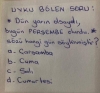 UYKU BÖLEN SORU:
* Dün yarın olsaydı,
bugün PERŞEMBE olurdu. *
sözü hangi gün söylenmiştir?
a. Çarşamba
b. Cuma
c. Salı
d. Cumartesi